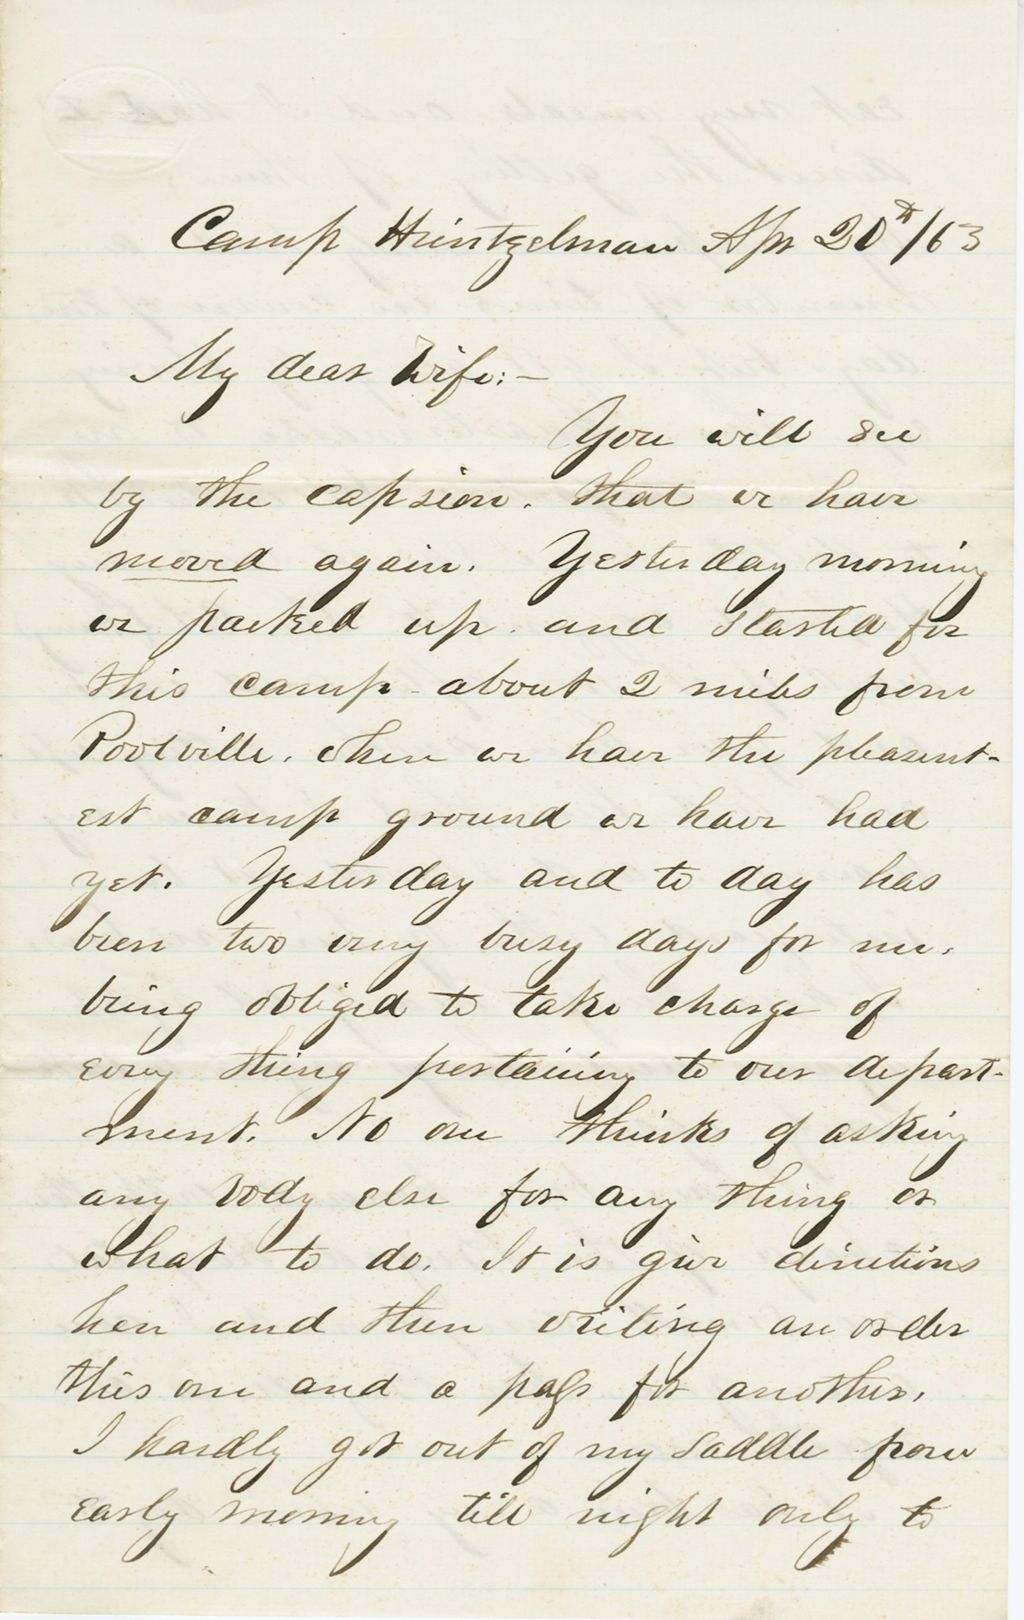 Camp Heintzelman Apr 20th/63
My dear Wife:—
You will see
by the capsion. that we have
moved again. Yesterday morning
we packed up. and started for
this camp - about 2 miles from
Poolville. where we have the pleasent-
est camp ground we have had
yet. Yesterday and to day has
been two very busy days for me.
being obliged to take charge of
every thing pertaining to our depart-
ment. No one thinks of asking
any body else for any thing or
what to do. It is give directions
here and there writing an order
this one and a pass for another.
I hardly got out of my saddle from
early morning till night only to